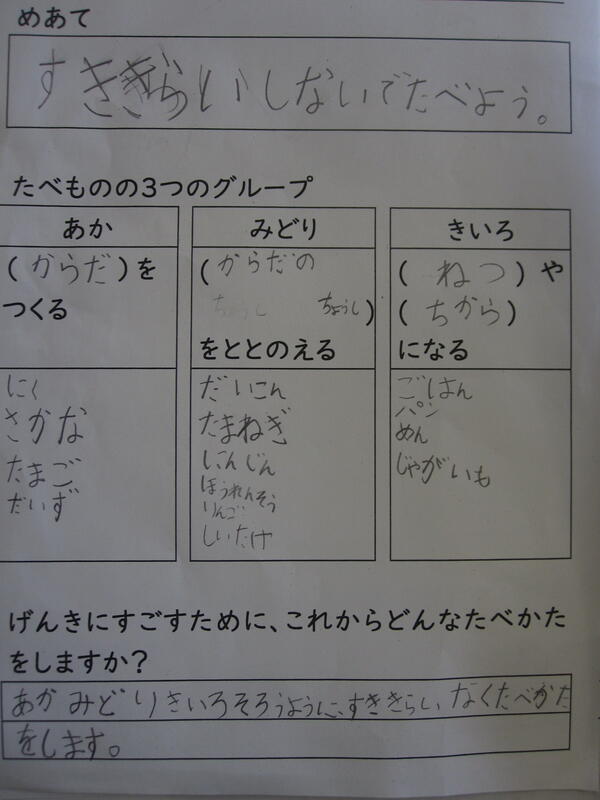 めあて
すききらいしないでたべよう。
たべものの3つのグループ
あか
(からだ)を
つくる
にく
さかな
たまご
だいず
みどり
(からだの
ちょうし)
をととのえる
だいこん
たまねぎ
にんじん
ほうれんそう
りんご
しいたけ
きいろ
(ねつ)や
(ちから)
になる
ごはん
パン
めん
じゃがいも
げんきにすごすために、これからどんなたべかた
をしますか?
あかみどりきいろそろうように、すききらいなくたべかた
をします。